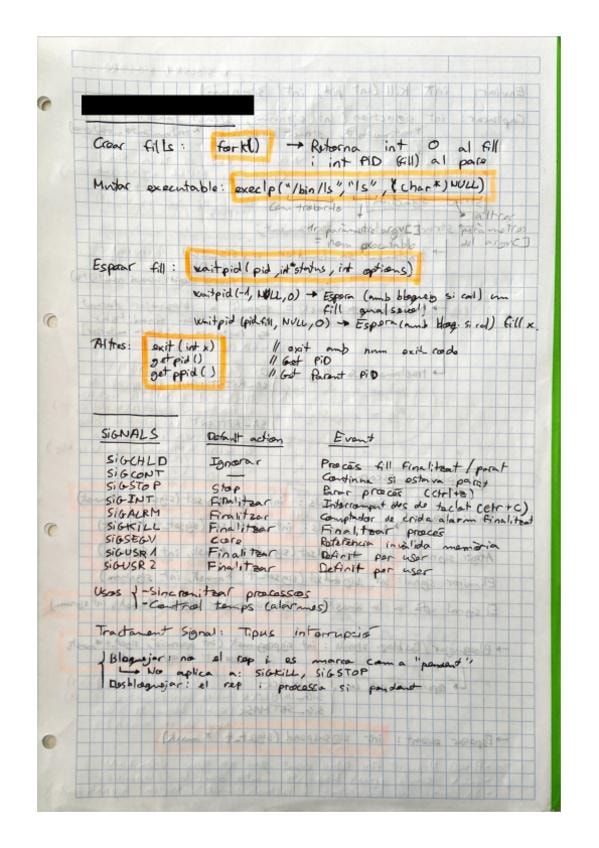 Crear fills: fork() → Retorna int 0 al fill
i int PID (fill) al pare
Mutar executable: execlp("/bin/ls", "ls", (char*) NULL)
Com trobarlo
altres
1r parametre argv[] parametres
= nom executable del argv[]
Esperar fill: waitpid(pid, int*status, int options)
waitpid(-1, NULL, 0) → Espera (amb bloqueig si cal) un
fill qualsevol
waitpid(pidfill, NULL, 0) → Espera (amb bloq. si cal) fill x.
Altres: exit(int x) // exit amb num exit code
getpid() // Get PiD
getppid() // Get Parent PiD
SiGNALS Default action Event
SiGCHLD Ignorar Procés fill finalitzat / parat
SiGCONT Continua si estava parat
SiGSTOP Stop Parar procés (ctrl+z)
SiGINT Finalitzar Interromput des de teclat (ctr+C)
SiGALRM Finalitzar Comptador de crida alarm finalitzat
SiGKILL Finalitzar Finalitzar procés
SiGSEGV Core Referència invàlida memòria
SiGUSR1 Finalitzar Definit per user
SiGUSR2 Finalitzar Definit per user
Usos { -Sincronitzar processos
-Control temps (alarmes)
Tractament Signal: Tipus interrupció
Bloquejar: no el rep i es marca com a "pendent".
↳ No aplica a: SiGKILL, SiGSTOP
Desbloquejar: el rep i processa si pendent